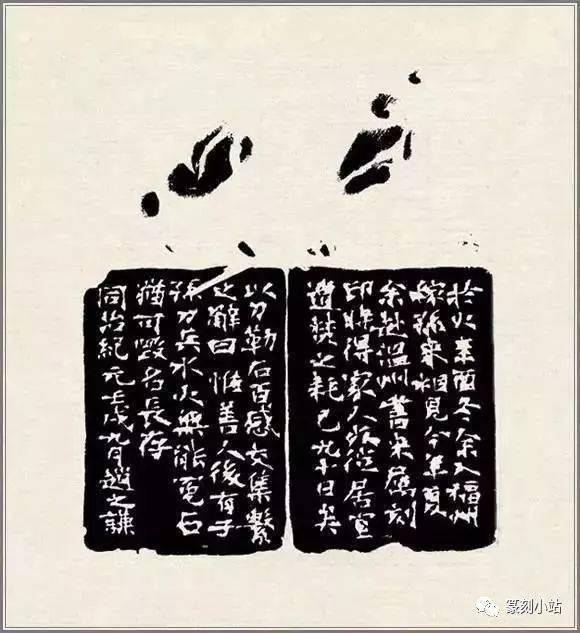 於火辛酉冬余入福州
稼孫來相見今年夏
余赴溫州舊未應刻
印時得家人徙居室
遭焚之耗已九十日矣
以刀勒石百感交集繫
之辭曰惟善人後有子
孫刀兵水火無能冤石
猶可毀者長存
同治紀元壬戌九月趙之謙
篆刻小站